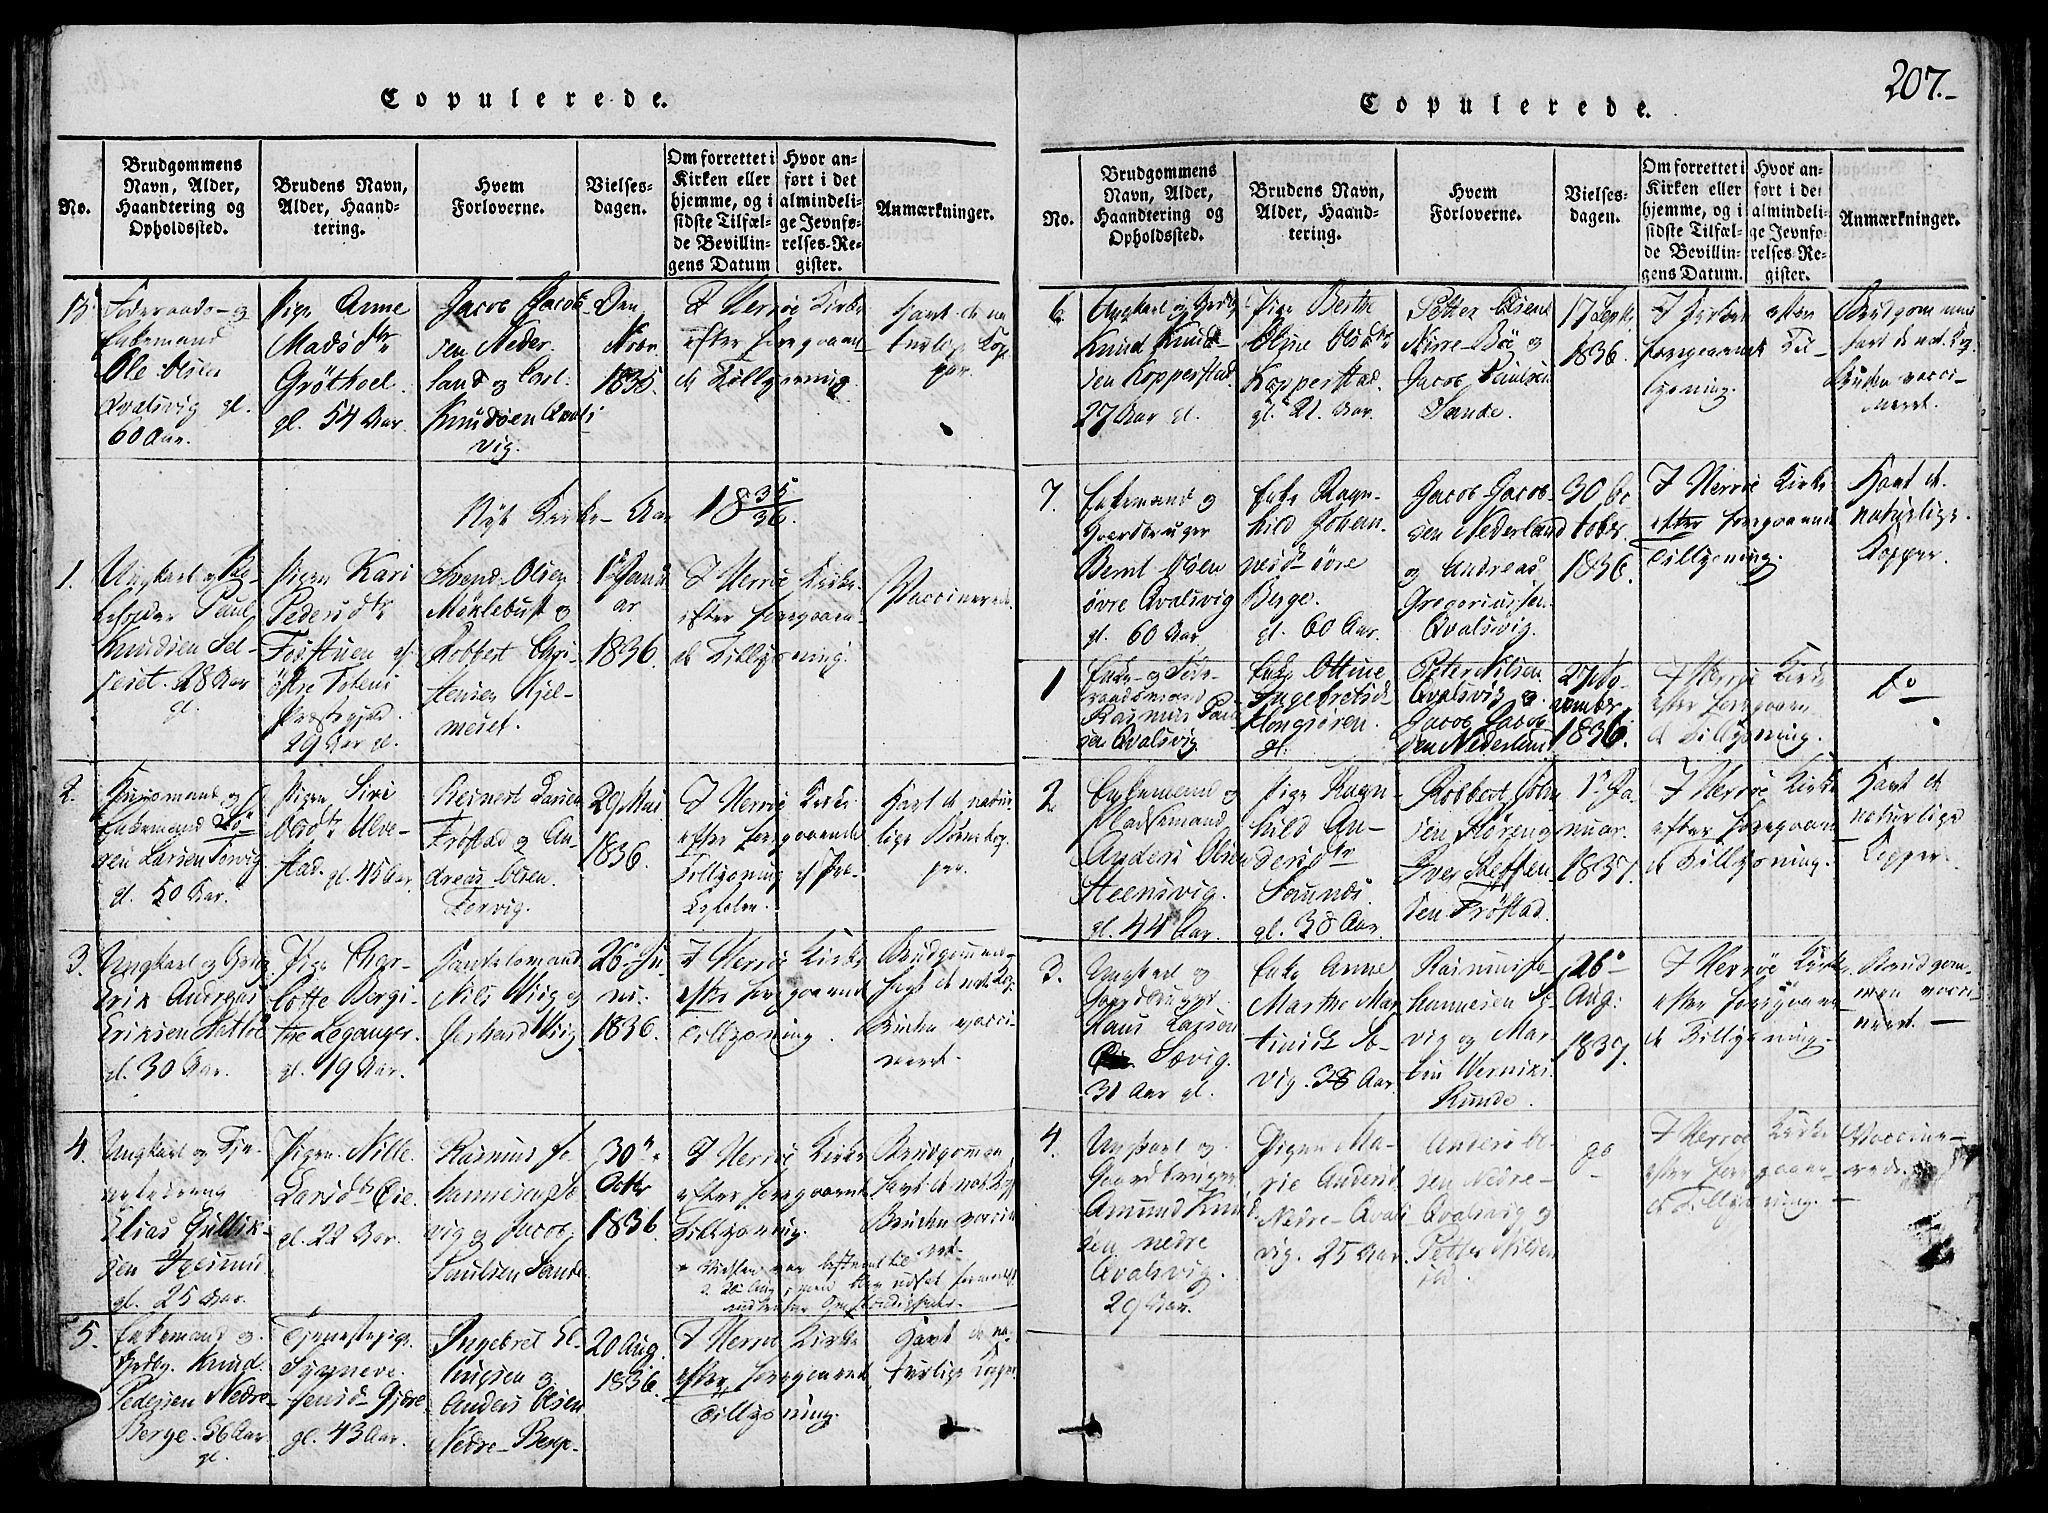 207.
Copulerede.
No.
Brudgommens
Navn, Alder,
Haandtering og
Opholdssted.
Brudens Navn,
Alder, Haand-
tering.
Hvem
Forloverne.
Vielses-
dagen.
Om forrettet i
Kirken eller
hjemme, og i
sidste Tilfæl-
de Bevillin-
gens Datum
Hvor an-
ført i det
almindeli-
ge Jevnfø-
relses-Re-
gister.
Anmærkninger.
13.
Enkemand
Ole Olsen
Qvalsvig gl.
60 Aar.
Pige Anne
Madsdtr
Grøthoel
gl. 54 Aar.
Jacob Jacob-
sen Neder
land og Carl
Knudsen Quals
vig.
Den
Novr
1835.
I Herröe Kirke
efter foregaaen-
de Tillysning
havt de na
turlige Kop
per.
Nyt Kirke-Aar 1835/36.
1.
Ungkarl og
Paul
Knudsen Sel-
seset. 28 Aar
gl.
Pigen Kari
Pedersdtr
af
østre Totens
Præstegjæld.
29 Aar gl.
Svend Olsen
Møklebust og
Robbert Chri
stensen Hjel-
meset.
1 Janu
ar
1836.
I Herröe Kirke
efter foregaaen-
de Tillysning.
Vaccinerede.
2.
Huusmand og
Enkemand
sen Larsen Tervig
gl. 50 Aar.
Pigen Siri
Olsdtr Ulve-
stad. gl. 45 Aar.
Reinert Larsen
Frøstad og An-
dreas Olsen
Tervig.
29 Mai
1836.
I Herröe Kirke
efter foregaaende
Tillysning af Præ-
kestolen.
Havt de natur-
lige Børnekop-
per.
3.
Ungkarl og
Erik Andreas
Eriksen
gl. 30 Aar.
Pige Char-
lotte Bergi-
the Leganger
gl. 19 Aar.
Handelsmand
Nils Wiig og
Gerhard Wiig
26 Ju
ni.
1836.
I Herröe Kirke
efter foregaaende
Tillysning.
Brudgommen
havt de nat. Kop.
Bruden vacci
neret.
4.
Ungkarl og Tje-
nestedreng
Elias Gullik-
sen
gl. 25 Aar.
Pigen Nille
Larsdtr Eie
gl. 22 Aar.
Rasmus Jo
hannesen Sæ
vig og Jacob
Paulsen Sande
30
Octbr
1836
I Herröe Kirke
efter foregaaende
Tillysning.
Brudgommen
havt de nat. Kop
Bruden vaccin
5.
Enkemand og
Knud
Pedersen Nedre-
Berge. 56 Aar
gl.
Tjenestepige
Synneve
gl. 43 Aar.
Ingebret El
lingsen og
Anders Olsen
Nedre-Berge
20 Aug.
1836.
I Herröe Kirke
efter foregaaende
Tillysning.
Havt de na-
turlige Kopper
Copulerede.
No.
Brudgommens
Navn, Alder,
Haandtering og
Opholdssted.
Brudens Navn,
Alder, Haand-
tering.
Hvem
Forloverne.
Vielses-
dagen.
Om forrettet i
Kirken eller
hjemme, og i
sidste Tilfæl-
de Bevillin-
gens Datum.
Hvor an-
ført i det
almindeli-
ge Jevnfø-
relses-Re-
gister.
Anmærkninger.
6
Ungkarl og
Knud Knud-
sen Kopperstad.
27 Aar gl.
Pige Berthe
Oline Olsdtr
Kopperstad.
gl. 21 Aar.
Petter Olsen
Nørre-Bøe og
Jacob Paulsen
Sande.
17 Septbr
1836.
I Kirken efter
foregaaende Til-
lysning.
Brudgommen
havt de nat. Kop.
Bruden vacci-
neret.
7.
Enkemand og
Gaardbruger
Bernt Olsen
øvre Qvalsvig
gl. 60 Aar
Enke Ragn-
hild Johan
nesdtr øvre
Berge.
gl. 60 Aar.
Jacob Jacob-
sen Nederland
og Andreas
Gregoriussen
Qvalsvig.
30 Oc
tober
1836.
I Herröe Kirke
efter foregaaende
Tillysning.
Havt de
naturlige
Kopper.
1
Enke- og Føde-
raadsmand
Rasmus Paul
sen Qvalsvig
Enke Oline
Ingebretsdtr
gl.
Peter Nilsen
Qvalsvig og
Jacob Jacob
sen Nederland
27 No-
vember
1836.
I Herröe Kirke
efter foregaaen
de Tillysning.
do
2.
Enkemand og
Pladsemand
Anders Olsen
Steensvig.
gl. 44 Aar.
Pige Ragn-
hild An-
dersdtr
gl. 38 Aar.
Robbert John
sen Støreng
Iver Steffen
sen Frøstad.
1 Ja
nuar.
1837.
I Herröe Kirke
efter foregaaen
de Tillysning.
Havt de
naturlige
Kopper.
3.
Ungkarl og
Gaardbruger
Hans Larsen
Sævig.
31 Aar gl.
Enke Anne
Marthe Mar
tinisdtr Sæ-
vig. 38 Aar
Rasmus Jo-
hannesen Sæ
vig og Mar-
tin Werniks
Runde.
26
Aug:
1837.
I Herröe Kirke
efter foregaaen
de Tillysning.
Brudgom-
men vacci
neret.
4.
Ungkarl og
Gaardbruger
Amund Knud
sen nedre
Qvalsvig.
29 Aar.
Pigen Ma-
rie Andersd
Nedre-Qvals
vig. 25 Aar
Anders Ol-
sen Nedre-
Qvalsvig og
Petter Nilsen
ibd.
do
I Herröe Kirke
efter foregaaen-
de Tillysning.
Vaccine-
rede.